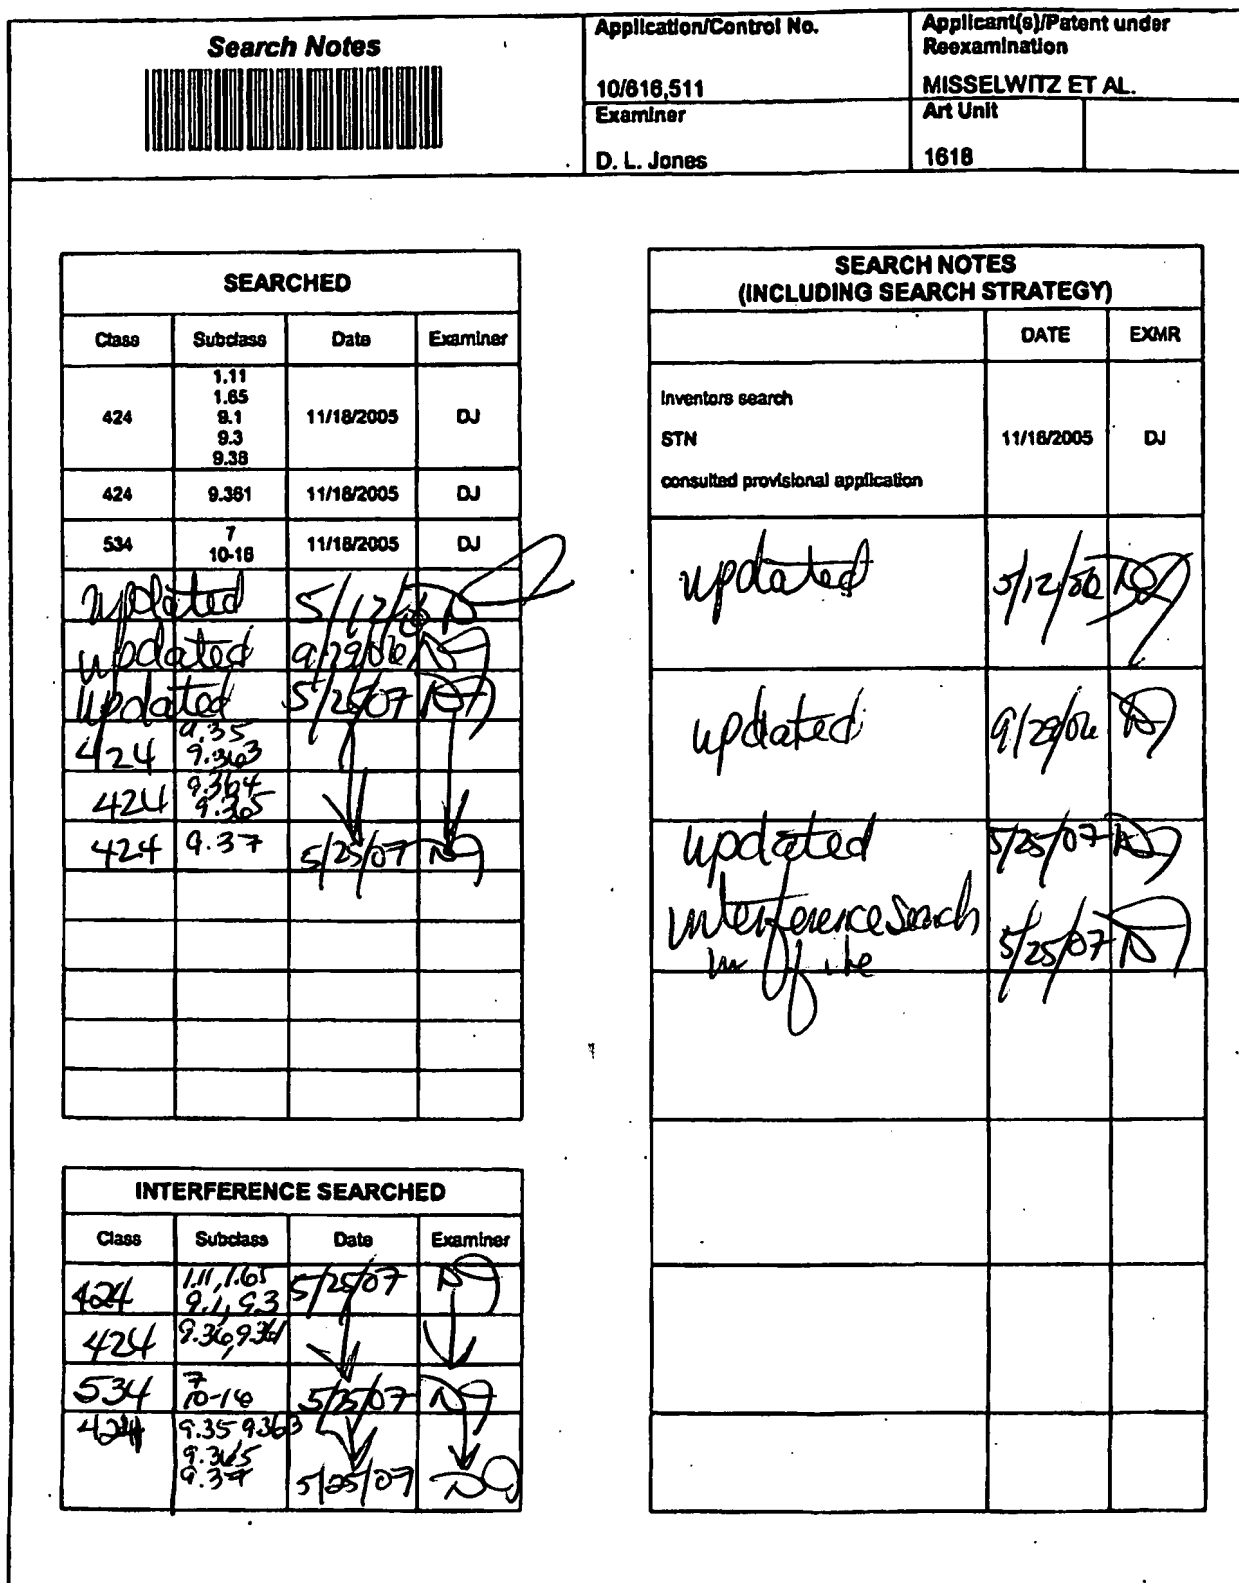 Search Notes
Application/Control No.
10/616,511
Applicant(s)/Patent under
Reexamination
MISSELWITZ ET AL.
Examiner
D. L. Jones
Art Unit
1618
SEARCHED
Class Subclass Date Examiner
1.11
1.65
424 9.1 11/18/2005 DJ
9.3
9.36
424 9.361 11/18/2005 DJ
534 7 11/18/2005 DJ
10-16
updated 5/12/06 DJ
updated 9/29/06 DJ
updated 5/25/07 DJ
424 9.35
9.363
424 9.364
9.365
424 9.37 5/25/07 DJ
INTERFERENCE SEARCHED
Class Subclass Date Examiner
424 1.11, 1.65 5/25/07 DJ
9.1, 9.3
424 9.36, 9.361
534 7 5/25/07 DJ
10-16
424 9.35 9.363
9.365
9.37 5/25/07 DJ
SEARCH NOTES
(INCLUDING SEARCH STRATEGY)
DATE EXMR
Inventors search
STN 11/18/2005 DJ
consulted provisional application
updated 5/12/06 DJ
updated 9/29/06 DJ
updated 5/25/07 DJ
interference search 5/25/07 DJ
in file